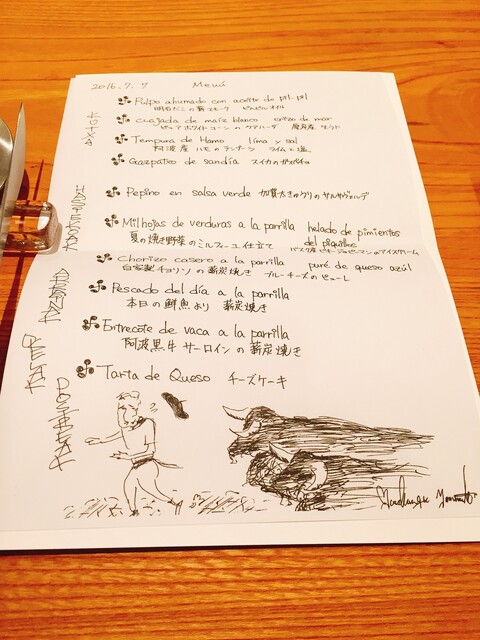 2016.7.7 Menú
Pulpo ahumado con aceite de pil-pil
明石だこの薪スモーク ピルピルオイル
Cuajada de maíz blanco erizo de mar
ピュアホワイトコーンのクアハーダ 産 ウニ
Tempura de Hamo lima y sal
阿波産 ハモのテンプーラ ライムと塩
Gazpatxo de sandía スイカのガスパチョ
Pepino en salsa verde 加賀太きゅうりのサルサヴェルデ
Milhojas de verduras a la parrilla helado de pimientos
夏の焼き野菜のミルフィーユ仕立て del piquillos
バスク産ピキージョピーマンのアイスクリーム
Chorizo casero a la parrilla puré de queso azúl
自家製チョリソの薪炭焼き ブルーチーズのピューレ
Pescado del día a la parrilla
本日の鮮魚より 薪炭焼き
Entrecote de vaca a la parrilla
阿波黒牛サーロインの薪炭焼き
Tarta de Queso チーズケーキ